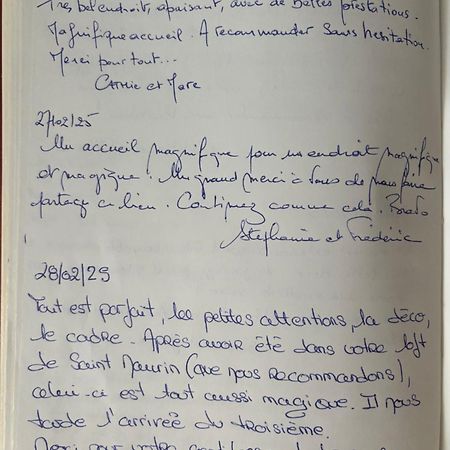 Très bel endroit, apaisant, avec de belles prestations.
Magnifique accueil. A recommander sans hésitation.
Merci pour tout...
Cathie et Marc
27/02/25
Un accueil magnifique pour un endroit magnifique
et magique. Un grand merci à vous de nous faire
partager ce lieu. Continuez comme cela. Bravo
Stéphanie et Frédéric
28/02/25
Tout est parfait, les petites attentions, la déco,
le cadre. Après avoir été dans votre loft
de Saint Maurin (que nous recommandons),
celui-ci est tout aussi magique. Il nous
tarde l'arrivée du troisième.
Merci pour votre